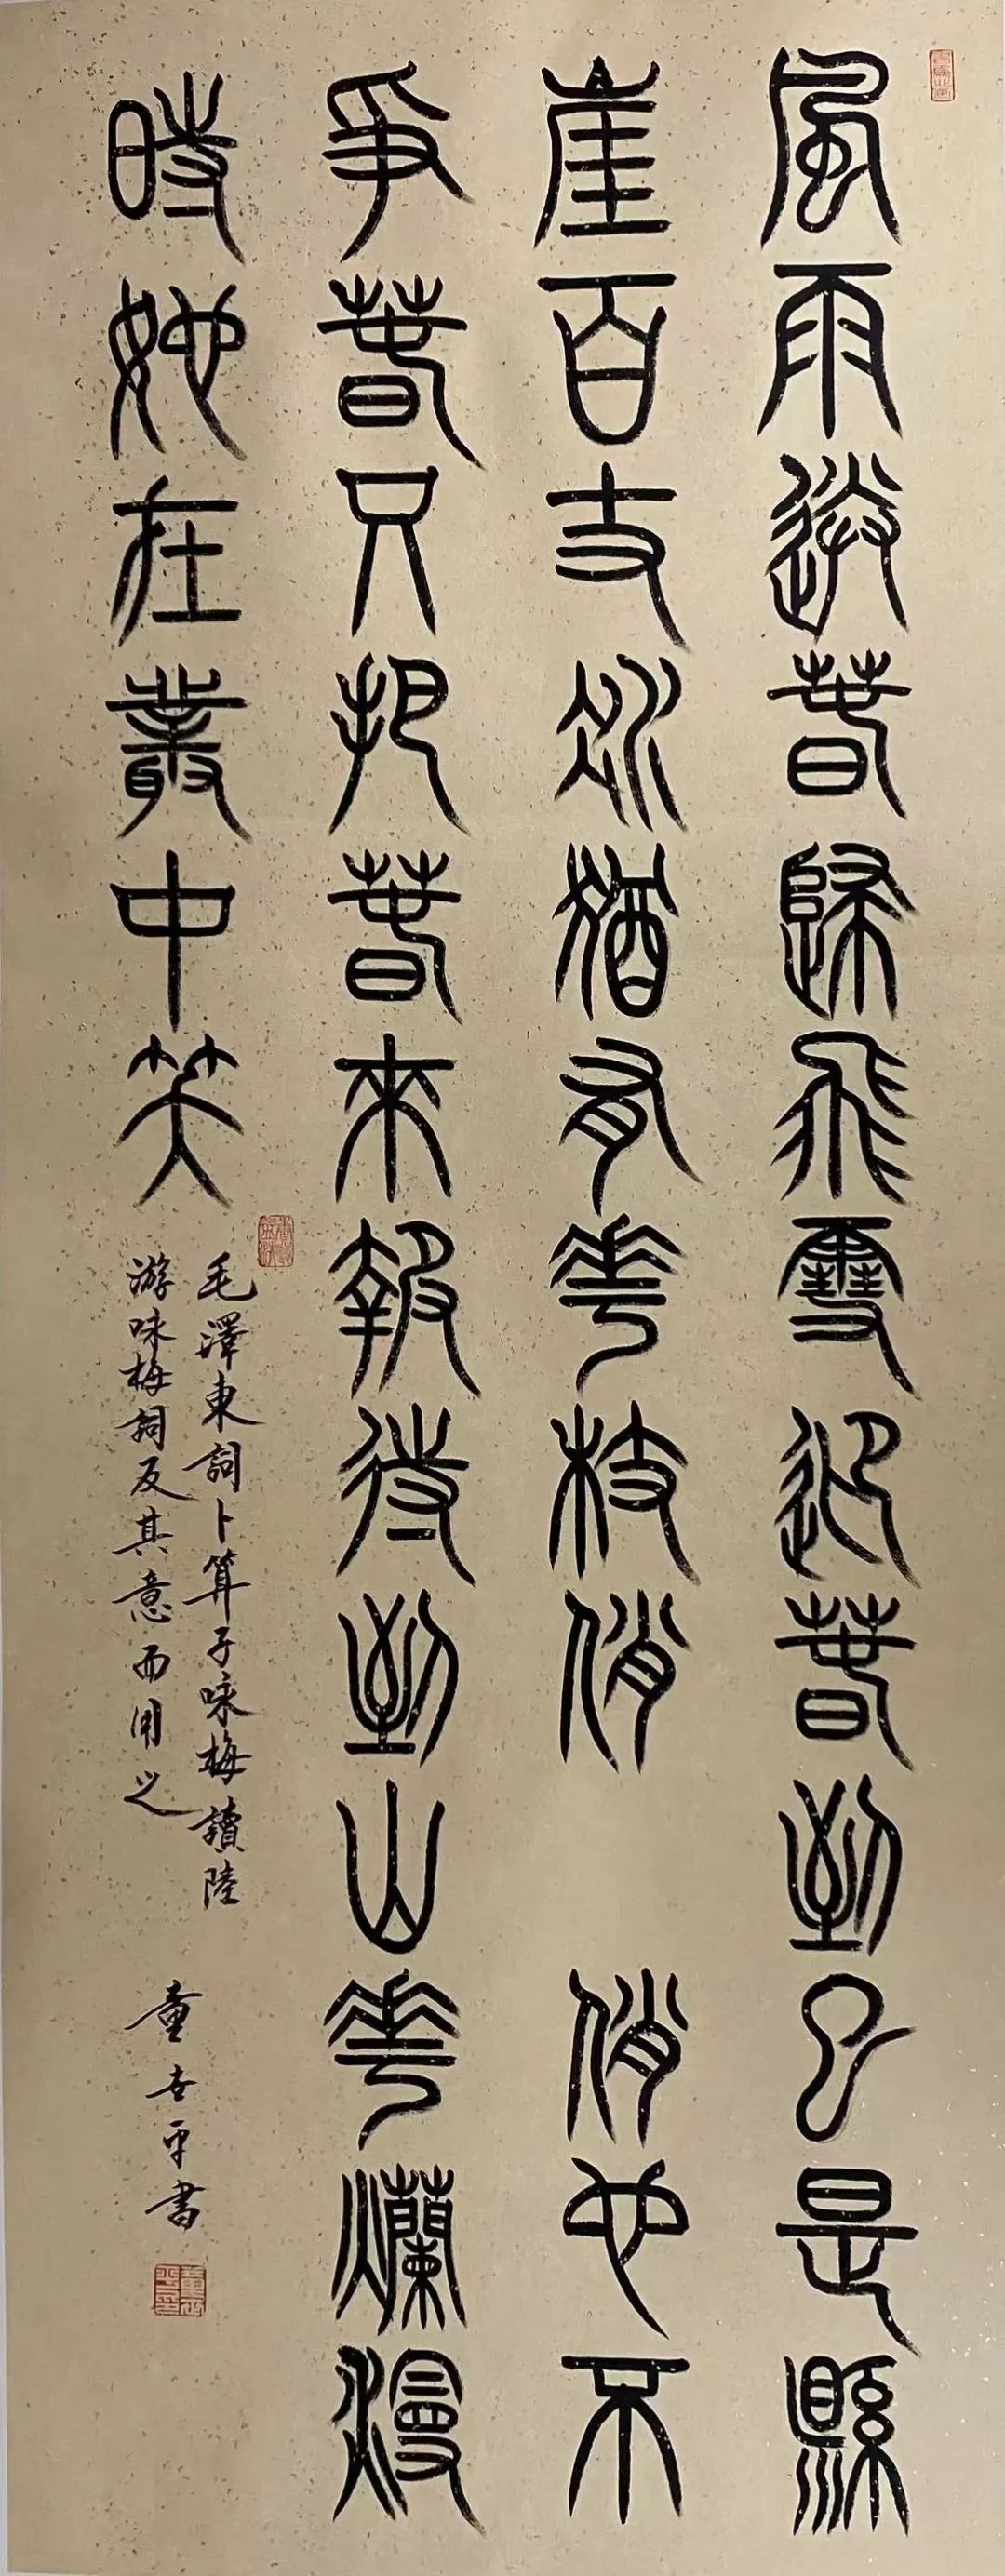 風雨送春歸飛雪迎春到已是縣
崖百丈冰猶有華枝俏 俏也不
爭春只把春來報待到山華爛漫
時她在叢中笑
毛澤東詞卜算子咏梅讀陸
游咏梅詞反其意而用之
童世平書